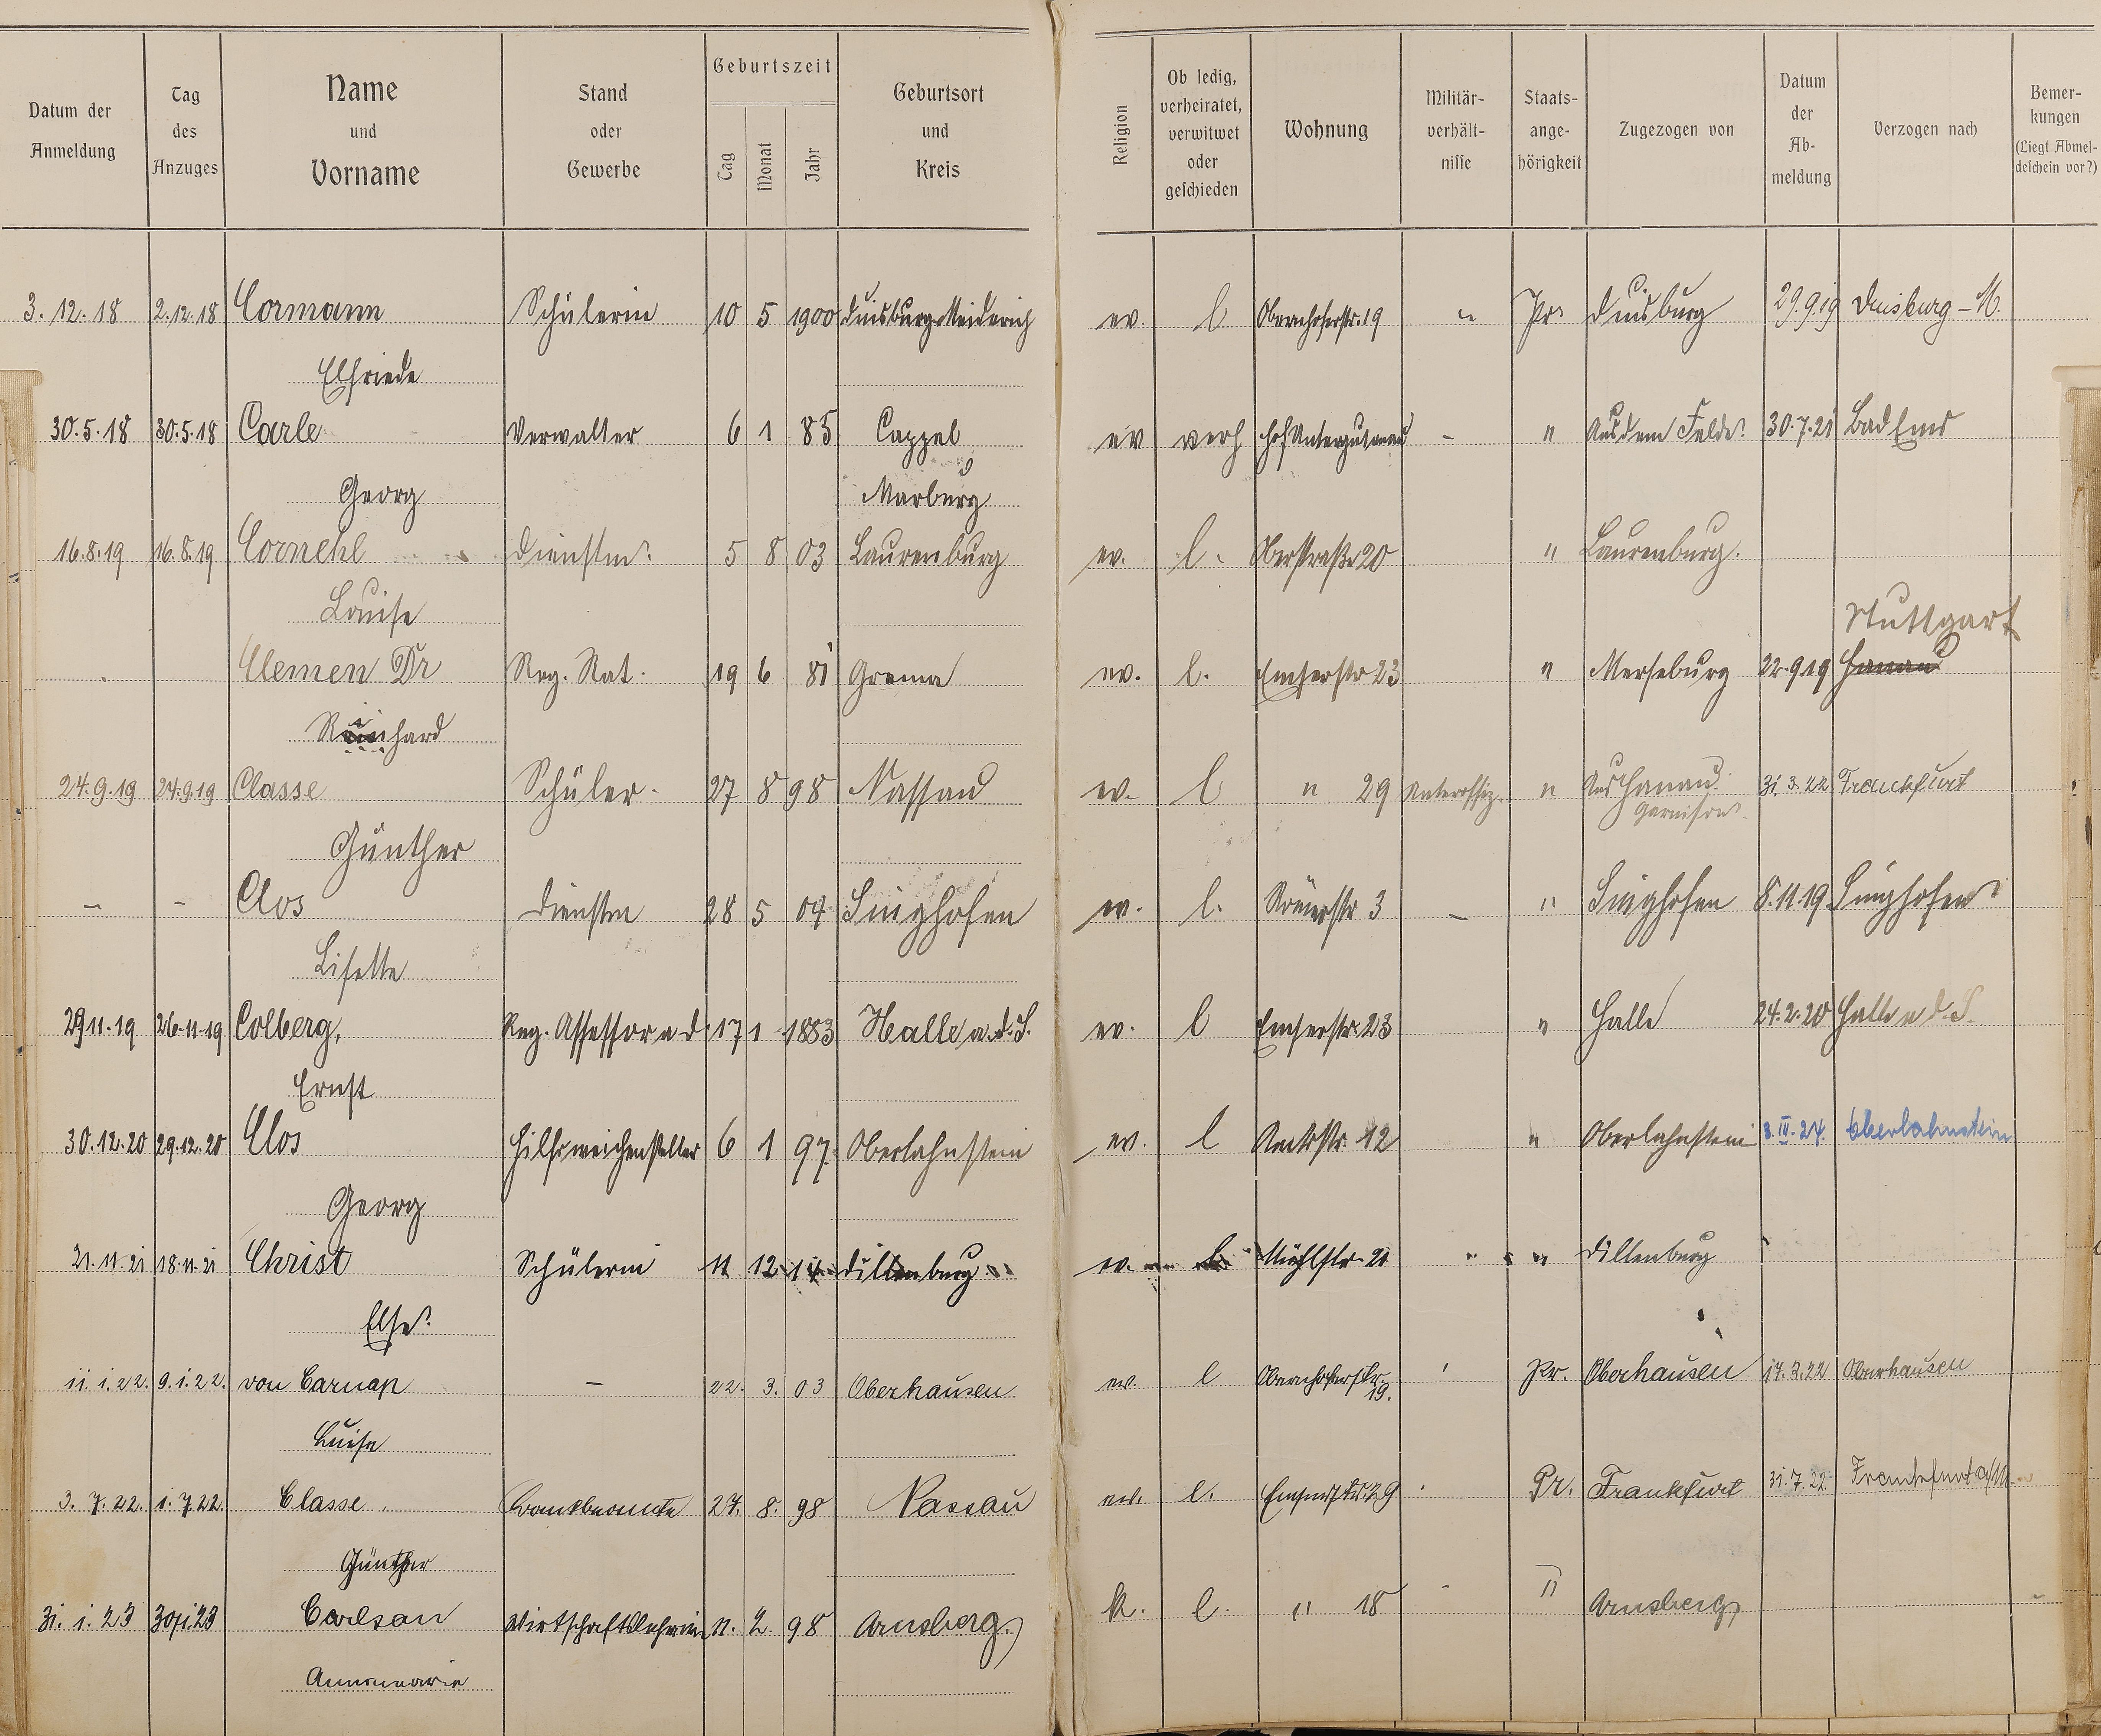 Datum der Anmeldung | Tag des Anzuges | Name und Vorname | Stand oder Gewerbe | Geburtszeit Tag Monat Jahr | Geburtsort und Kreis | Religion | Ob ledig, verheiratet, verwitwet oder geschieden | Wohnung | Militär-verhält-nisse | Staats-ange-hörigkeit | Zugezogen von | Datum der Ab-meldung | Verzogen nach | Bemer-kungen (Liegt Abmel-deschein vor?)
3. 12. 18 2.12.18 Cormann Schülerin 10 5 1900 Duisburg-Meiderich ev. l Obernhoferstr. 19 " Pr. Duisburg 29.9.19 Duisburg-M.
Elfriede
30.5.18 30.5.18 Carle Verwalter 6 1 85 Cappel ev verh Hof Untergutenau - " Aus dem Felde. 30.7.21 Bad Ems
Georg Marburg
16.8.19 16.8.19 Cornehl Dienstm. 5 8 03 Laurenburg ev. l. Oberstraße 20 " Laurenburg.
Louise
Stuttgart
Clemen Dr Reg. Rat. 19 6 81 ev. l. Emserstr 23 " Merseburg 22.9.19 Hanau
Reinhard
24.9.19 24.9.19 Classe Schüler 27 8 98 Nassau ev. l " 29 Unteroffiz. " Aus Hanau. 31.3.22 Frankfurt
Garnison
Günther
- - Clos Dienstm 28 5 04 Singhofen ev. l. 3 - " Singhofen 8.11.19 Singhofen
Lisette
29 11.19 26.11.19 Colberg, Reg. Assessor a d. 17 1 1883 Halle a. d. S. ev. l Emserstr. 23 " Halle 24.2.20 Halle a d. S.
Ernst
30.12.20 29.12.20 Clos Hilfsweichensteller 6 1 97 Oberlahnstein ev. l Amtsstr. 12 " Oberlahnstein 3.III.24. Oberlahnstein
Georg
21.11.21 18.11.21 Christ Schülerin 11 12 14 Dillenburg ev. l. Mühlstr. 21 " " Dillenburg
Else.
11.1.22. 9.1.22. von Carnap - 22. 3. 03 Oberhausen ev. l Obernhoferstr. 19. Pr. Oberhausen 17.3.22 Oberhausen
Luise
3. 7. 22. 1. 7.22. Classe Bankbeamte 27. 8. 98 Nassau ev. l. Emserstr. 29 Pr. Frankfurt 31.7.22 Frankfurt a/M.
Günther
31. 1. 23 30/1.23 Carlsan Wirtschaftslehrerin 11. 2. 98 Arnsberg. k. l. " 18 - " Arnsberg
Annemarie